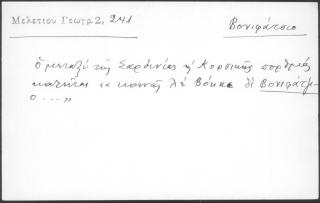 Μελετίου Γεωγρ 2, 241
Βονιφάτσιο
ὁ μεταξὺ τῆς Σαρδινίας κ' Κορσικῆς πορθμός
καλεῖται κοινῶς Βόκκε Βονιφάτζι-
ο....,,